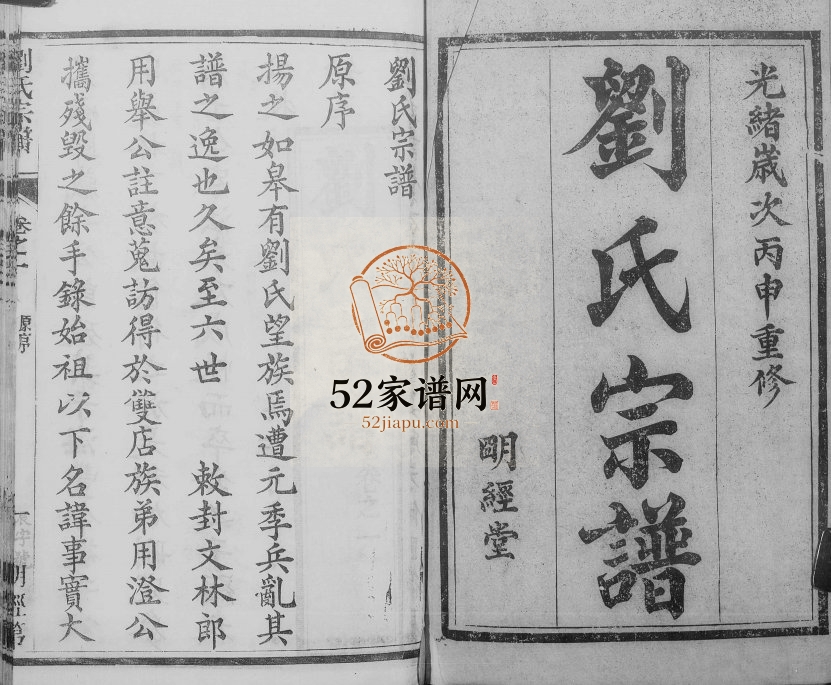 光緒歲次丙申重修
劉氏宗譜
明經堂
劉氏宗譜
原序
揚之如皋有劉氏望族焉遭元季兵亂其
譜之逸也久矣至六世 敕封文林郎
用舉公註意蒐訪得於雙店族弟用澄公
攜殘毀之餘手錄始祖以下名諱事實大
劉氏宗譜
卷之一
原序
明經
52家谱网
52jiapu.com